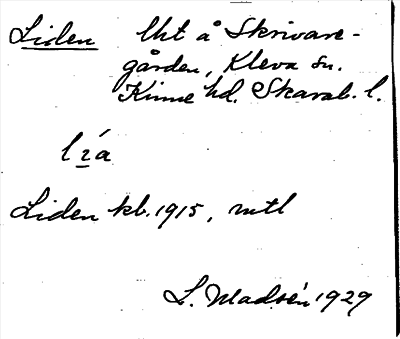 Liden lht å Skrivare-
gården, Kleva sn.
Kinne hd. Skarab. l.
lía
Liden kb. 1915, mtl
L. Madsén 1929